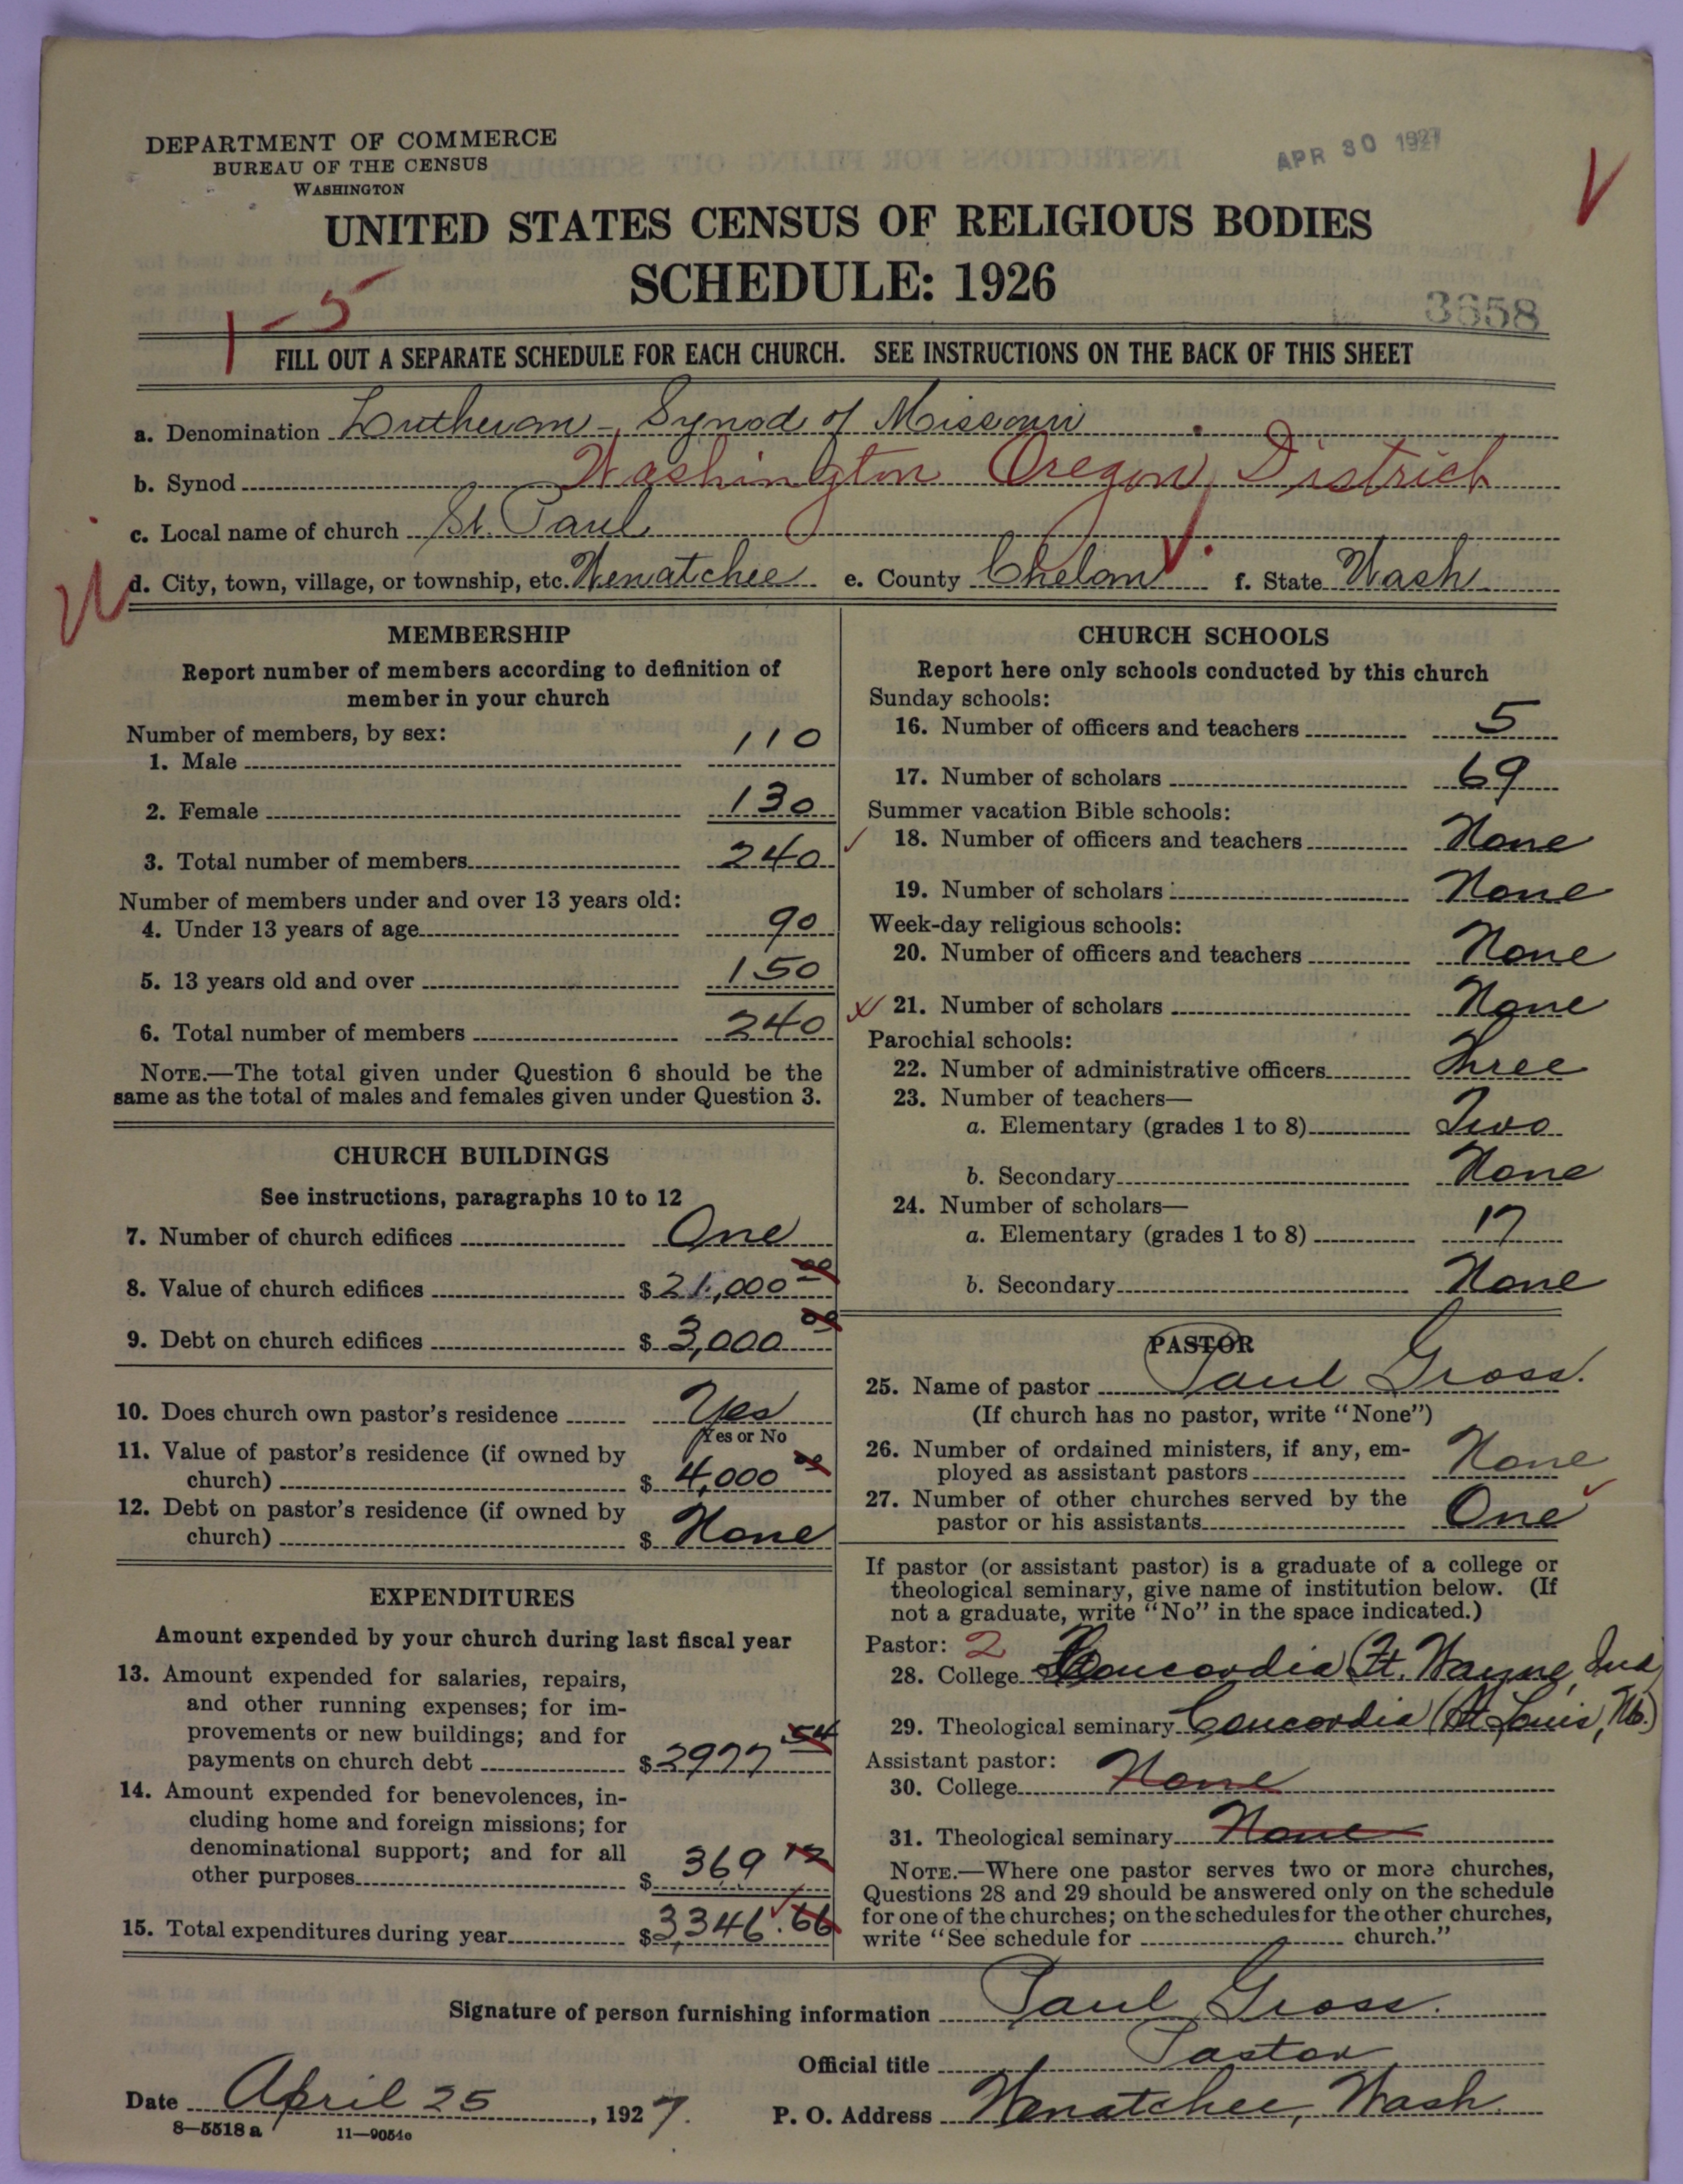 DEPARTMENT OF COMMERCE
BUREAU OF THE CENSUS
WASHINGTON
APR 30 1927
UNITED STATES CENSUS OF RELIGIOUS BODIES
SCHEDULE: 1926
1-5
3658
FILL OUT A SEPARATE SCHEDULE FOR EACH CHURCH. SEE INSTRUCTIONS ON THE BACK OF THIS SHEET
a. Denomination Lutheran - Synod of Missouri
b. Synod Washington Oregon District
c. Local name of church St. Paul
d. City, town, village, or township, etc. Wenatchee e. County Chelan f. State Wash
MEMBERSHIP
Report number of members according to definition of
member in your church
Number of members, by sex:
1. Male 110
2. Female 130
3. Total number of members 240
Number of members under and over 13 years old:
4. Under 13 years of age 90
5. 13 years old and over 150
6. Total number of members 240
NOTE.—The total given under Question 6 should be the
same as the total of males and females given under Question 3.
CHURCH BUILDINGS
See instructions, paragraphs 10 to 12
7. Number of church edifices One
8. Value of church edifices $21,000 00
9. Debt on church edifices $3,000 00
10. Does church own pastor's residence Yes
Yes or No
11. Value of pastor's residence (if owned by
church) $4,000 00
12. Debt on pastor's residence (if owned by
church) $ None
EXPENDITURES
Amount expended by your church during last fiscal year
13. Amount expended for salaries, repairs,
and other running expenses; for im-
provements or new buildings; and for
payments on church debt $2977 54
14. Amount expended for benevolences, in-
cluding home and foreign missions; for
denominational support; and for all
other purposes $369 12
15. Total expenditures during year $3,346.66
CHURCH SCHOOLS
Report here only schools conducted by this church
Sunday schools:
16. Number of officers and teachers 5
17. Number of scholars 69
Summer vacation Bible schools:
18. Number of officers and teachers None
19. Number of scholars None
Week-day religious schools:
20. Number of officers and teachers None
21. Number of scholars None
Parochial schools:
22. Number of administrative officers Three
23. Number of teachers—
a. Elementary (grades 1 to 8) Two
b. Secondary None
24. Number of scholars—
a. Elementary (grades 1 to 8) 17
b. Secondary None
PASTOR
25. Name of pastor Paul Gross.
(If church has no pastor, write "None")
26. Number of ordained ministers, if any, em-
ployed as assistant pastors None
27. Number of other churches served by the
pastor or his assistants One
If pastor (or assistant pastor) is a graduate of a college or
theological seminary, give name of institution below. (If
not a graduate, write "No" in the space indicated.)
Pastor: 2
28. College Concordia (Ft. Wayne, Ind
29. Theological seminary Concordia (St Louis, Mo.)
Assistant pastor:
30. College None
31. Theological seminary None
NOTE.—Where one pastor serves two or more churches,
Questions 28 and 29 should be answered only on the schedule
for one of the churches; on the schedules for the other churches,
write "See schedule for church."
Signature of person furnishing information Paul Gross.
Official title Pastor
Date April 25, 1927. P. O. Address Wenatchee, Wash.
8—5518 a 11—9054e